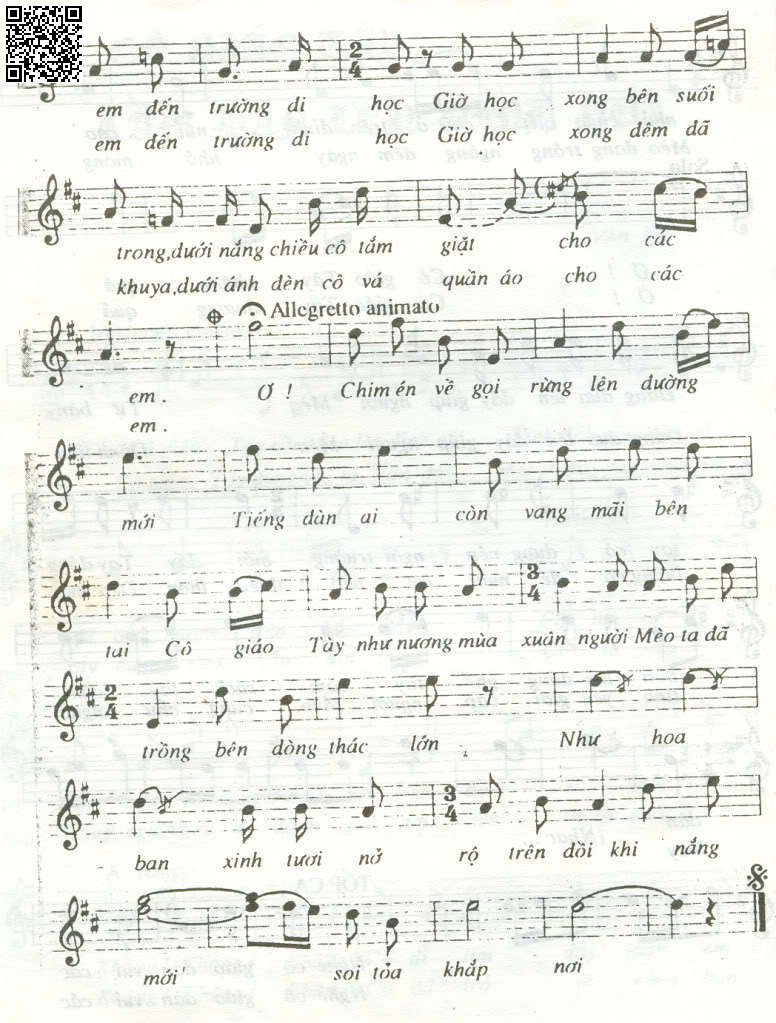 em đến trường đi học Giờ học xong bên suối
em đến trường đi học Giờ học xong đêm đã
trong, dưới nắng chiều cô tắm giặt cho các
khuya, dưới ánh đèn cô vá quần áo cho các
Allegretto animato
em. Ơ ! Chim én về gọi rừng lên đường
em.
mới Tiếng đàn ai còn vang mãi bên
tai Cô giáo Tày như nương mùa xuân người Mèo ta đã
trồng bên dòng thác lớn. Như hoa
ban xinh tươi nở rộ trên đồi khi nắng
mới soi tỏa khắp nơi